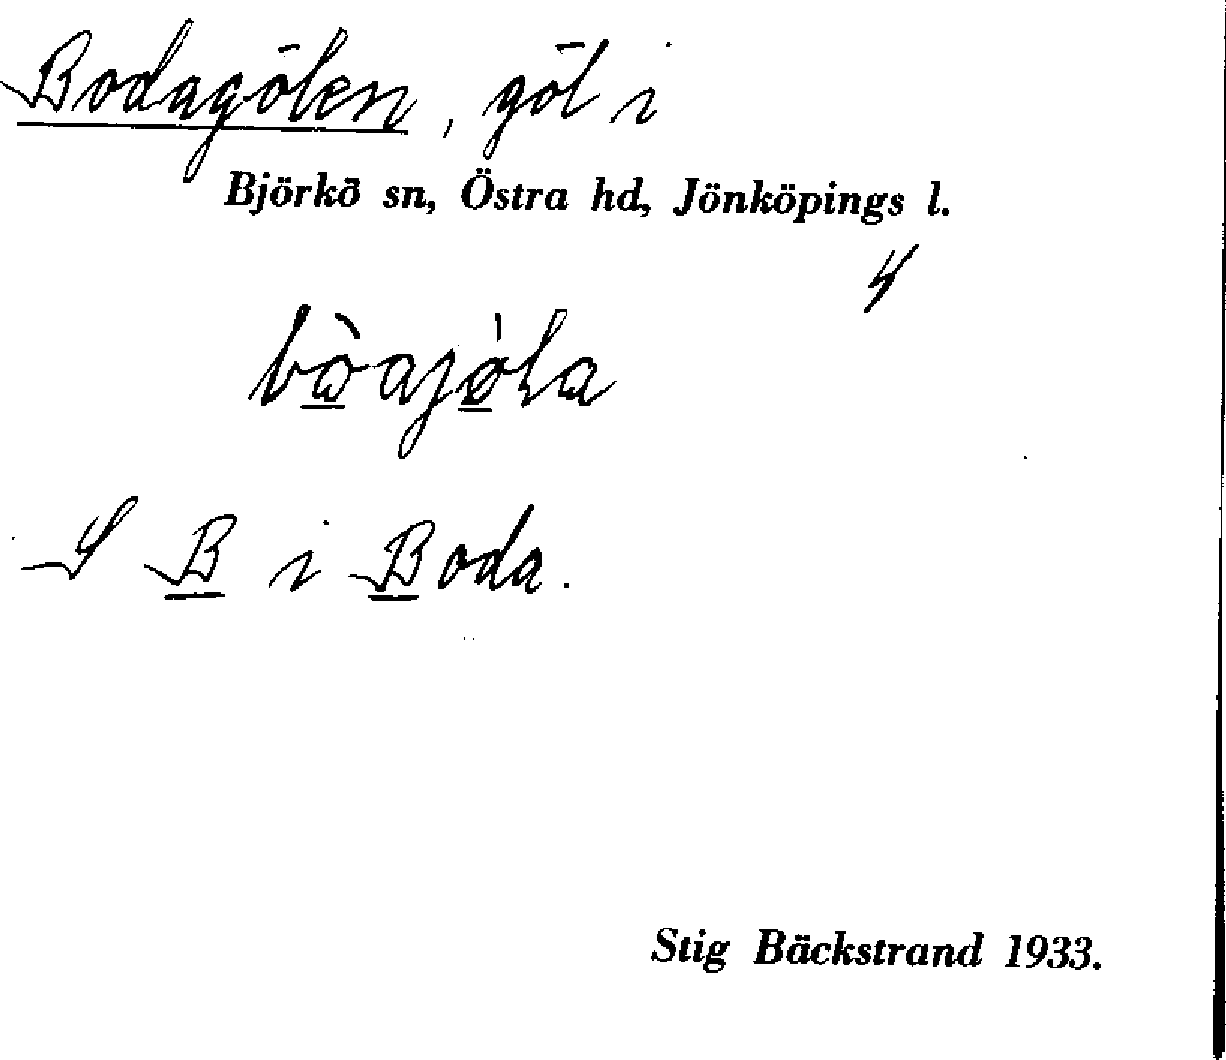 Bodagölen, göl i
Björkö sn, Östra hd, Jönköpings l.
4
bòajø̀la
S B i Boda.
Stig Bäckstrand 1933.